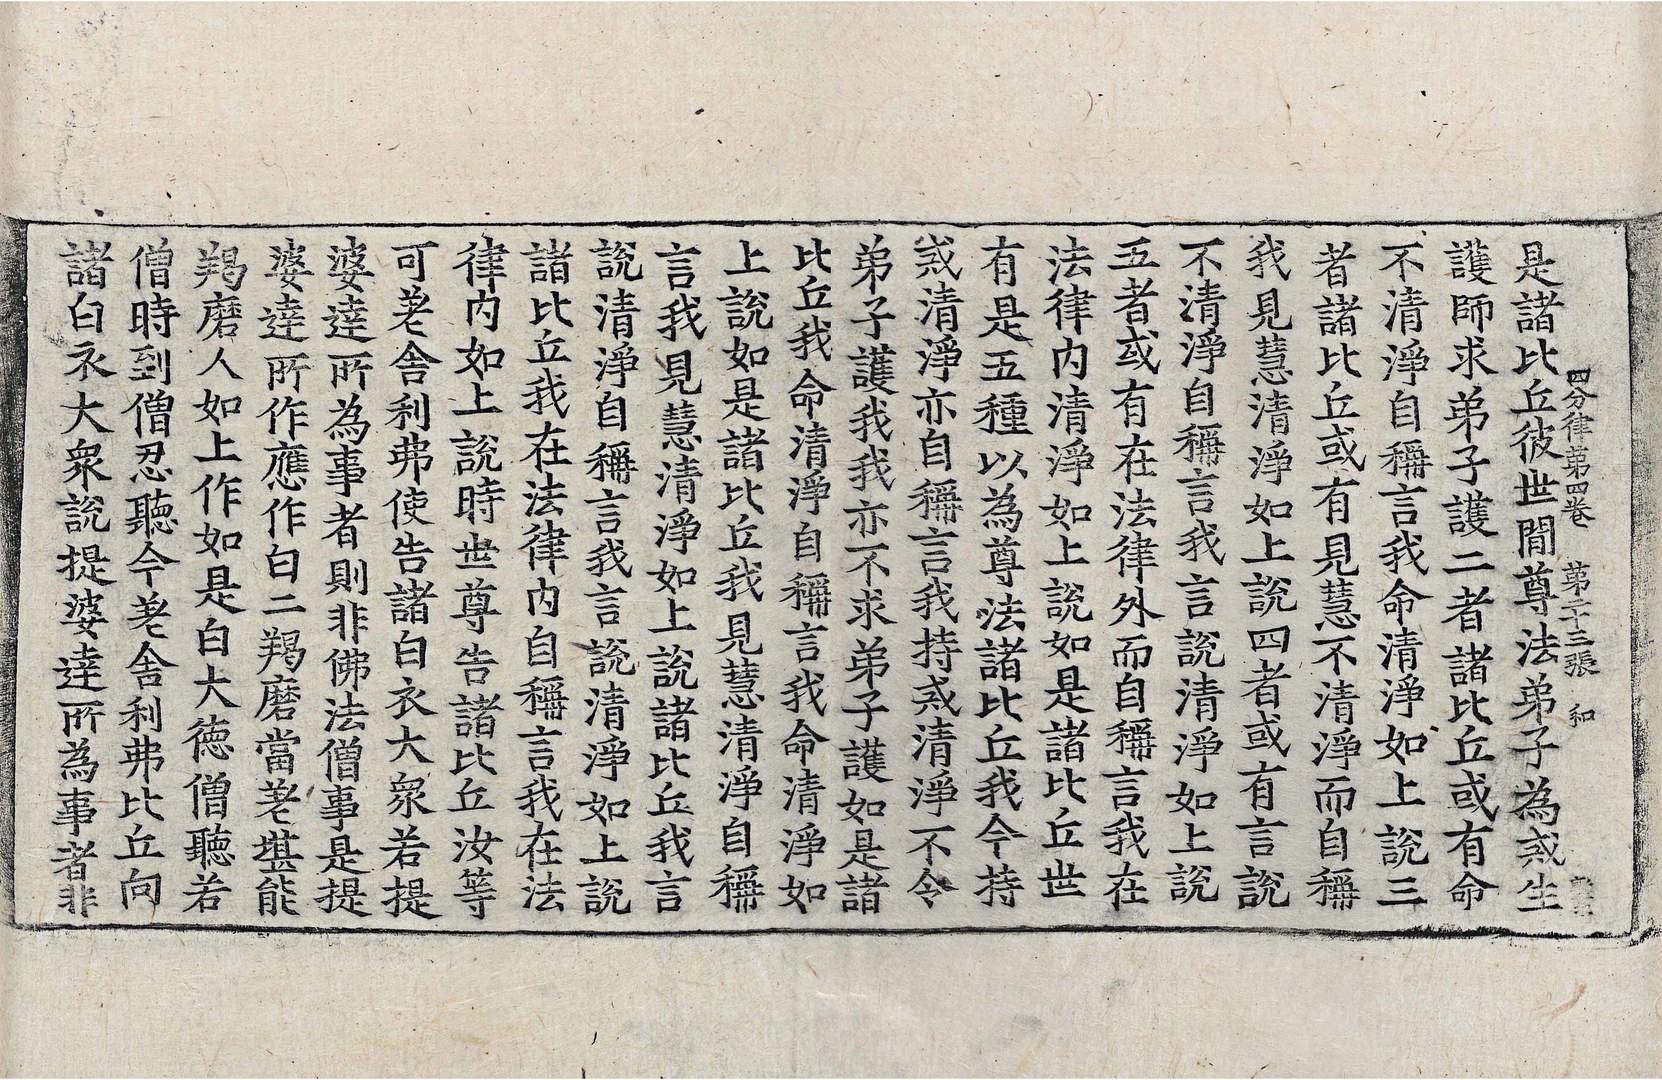 四分律第四卷 第二十三張 和
是諸比丘彼世間尊法弟子為戒生
護師求弟子護二者諸比丘或有命
不清淨自稱言我命清淨如上說三
者諸比丘或有見慧不清淨而自稱
我見慧清淨如上說四者或有言說
不清淨自稱言我言說清淨如上說
五者或有在法律外而自稱言我在
法律內清淨如上說如是諸比丘世
有是五種以為尊法諸比丘我今持
戒清淨亦自稱言我持戒清淨不令
弟子護我我亦不求弟子護如是諸
比丘我命清淨自稱言我命清淨如
上說如是諸比丘我見慧清淨自稱
言我見慧清淨如上說諸比丘我言
說清淨自稱言我言說清淨如上說
諸比丘我在法律內自稱言我在法
律內如上說時世尊告諸比丘汝等
可差舍利弗使告諸白衣大眾若提
婆達所為事者則非佛法僧事是提
婆達所作應作白二羯磨當差堪能
羯磨人如上作如是白大德僧聽若
僧時到僧忍聽今差舍利弗比丘向
諸白衣大眾說提婆達所為事者非